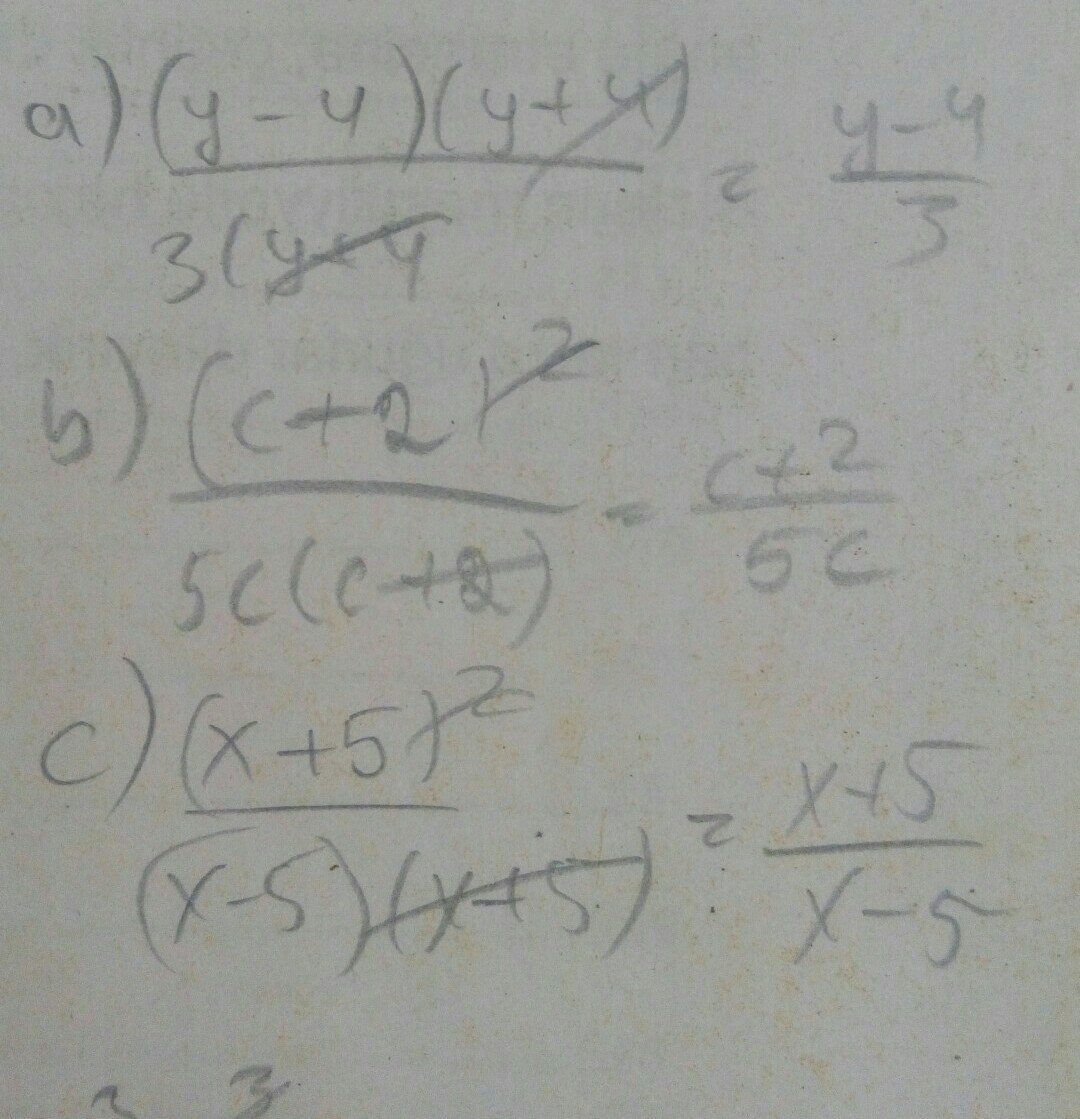 a) (y-4)(y+4) / 3(y+4 = y-4 / 3
b) (c+2)² / 5c(c+2) = c+2 / 5c
c) (x+5)² / (x-5)(x+5) = x+5 / x-5